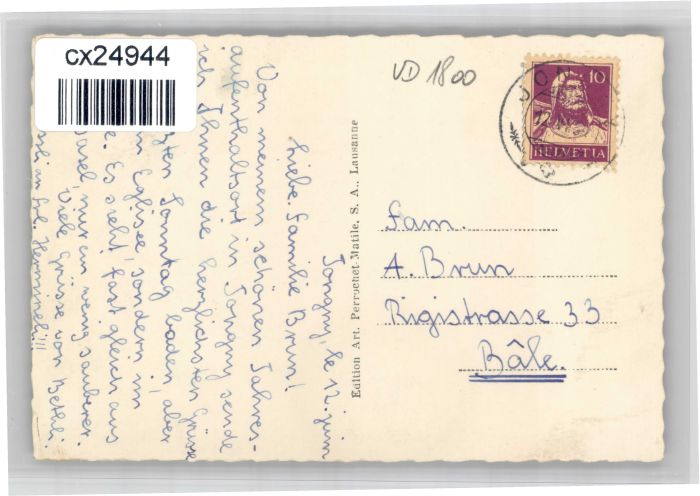 cx24944
VD 1800
10
HELVETIA
Jongny, le 12. juin
Liebe Familie Brun!
Von meinem schönen Jahres-
aufenthaltsort in Jongny sende
ich Ihnen die herzlichsten Grüsse
Sonntag baden, aber
Eglisee, sondern im
Es sieht fast gleich aus
nur ein wenig sauberer.
Viele Grüsse von Bethli.
an Frl. Hemmineli!!!
Edition Art. Perrochet-Matile, S. A., Lausanne
Fam.
A. Brun
Rigistrasse 33
Bâle.